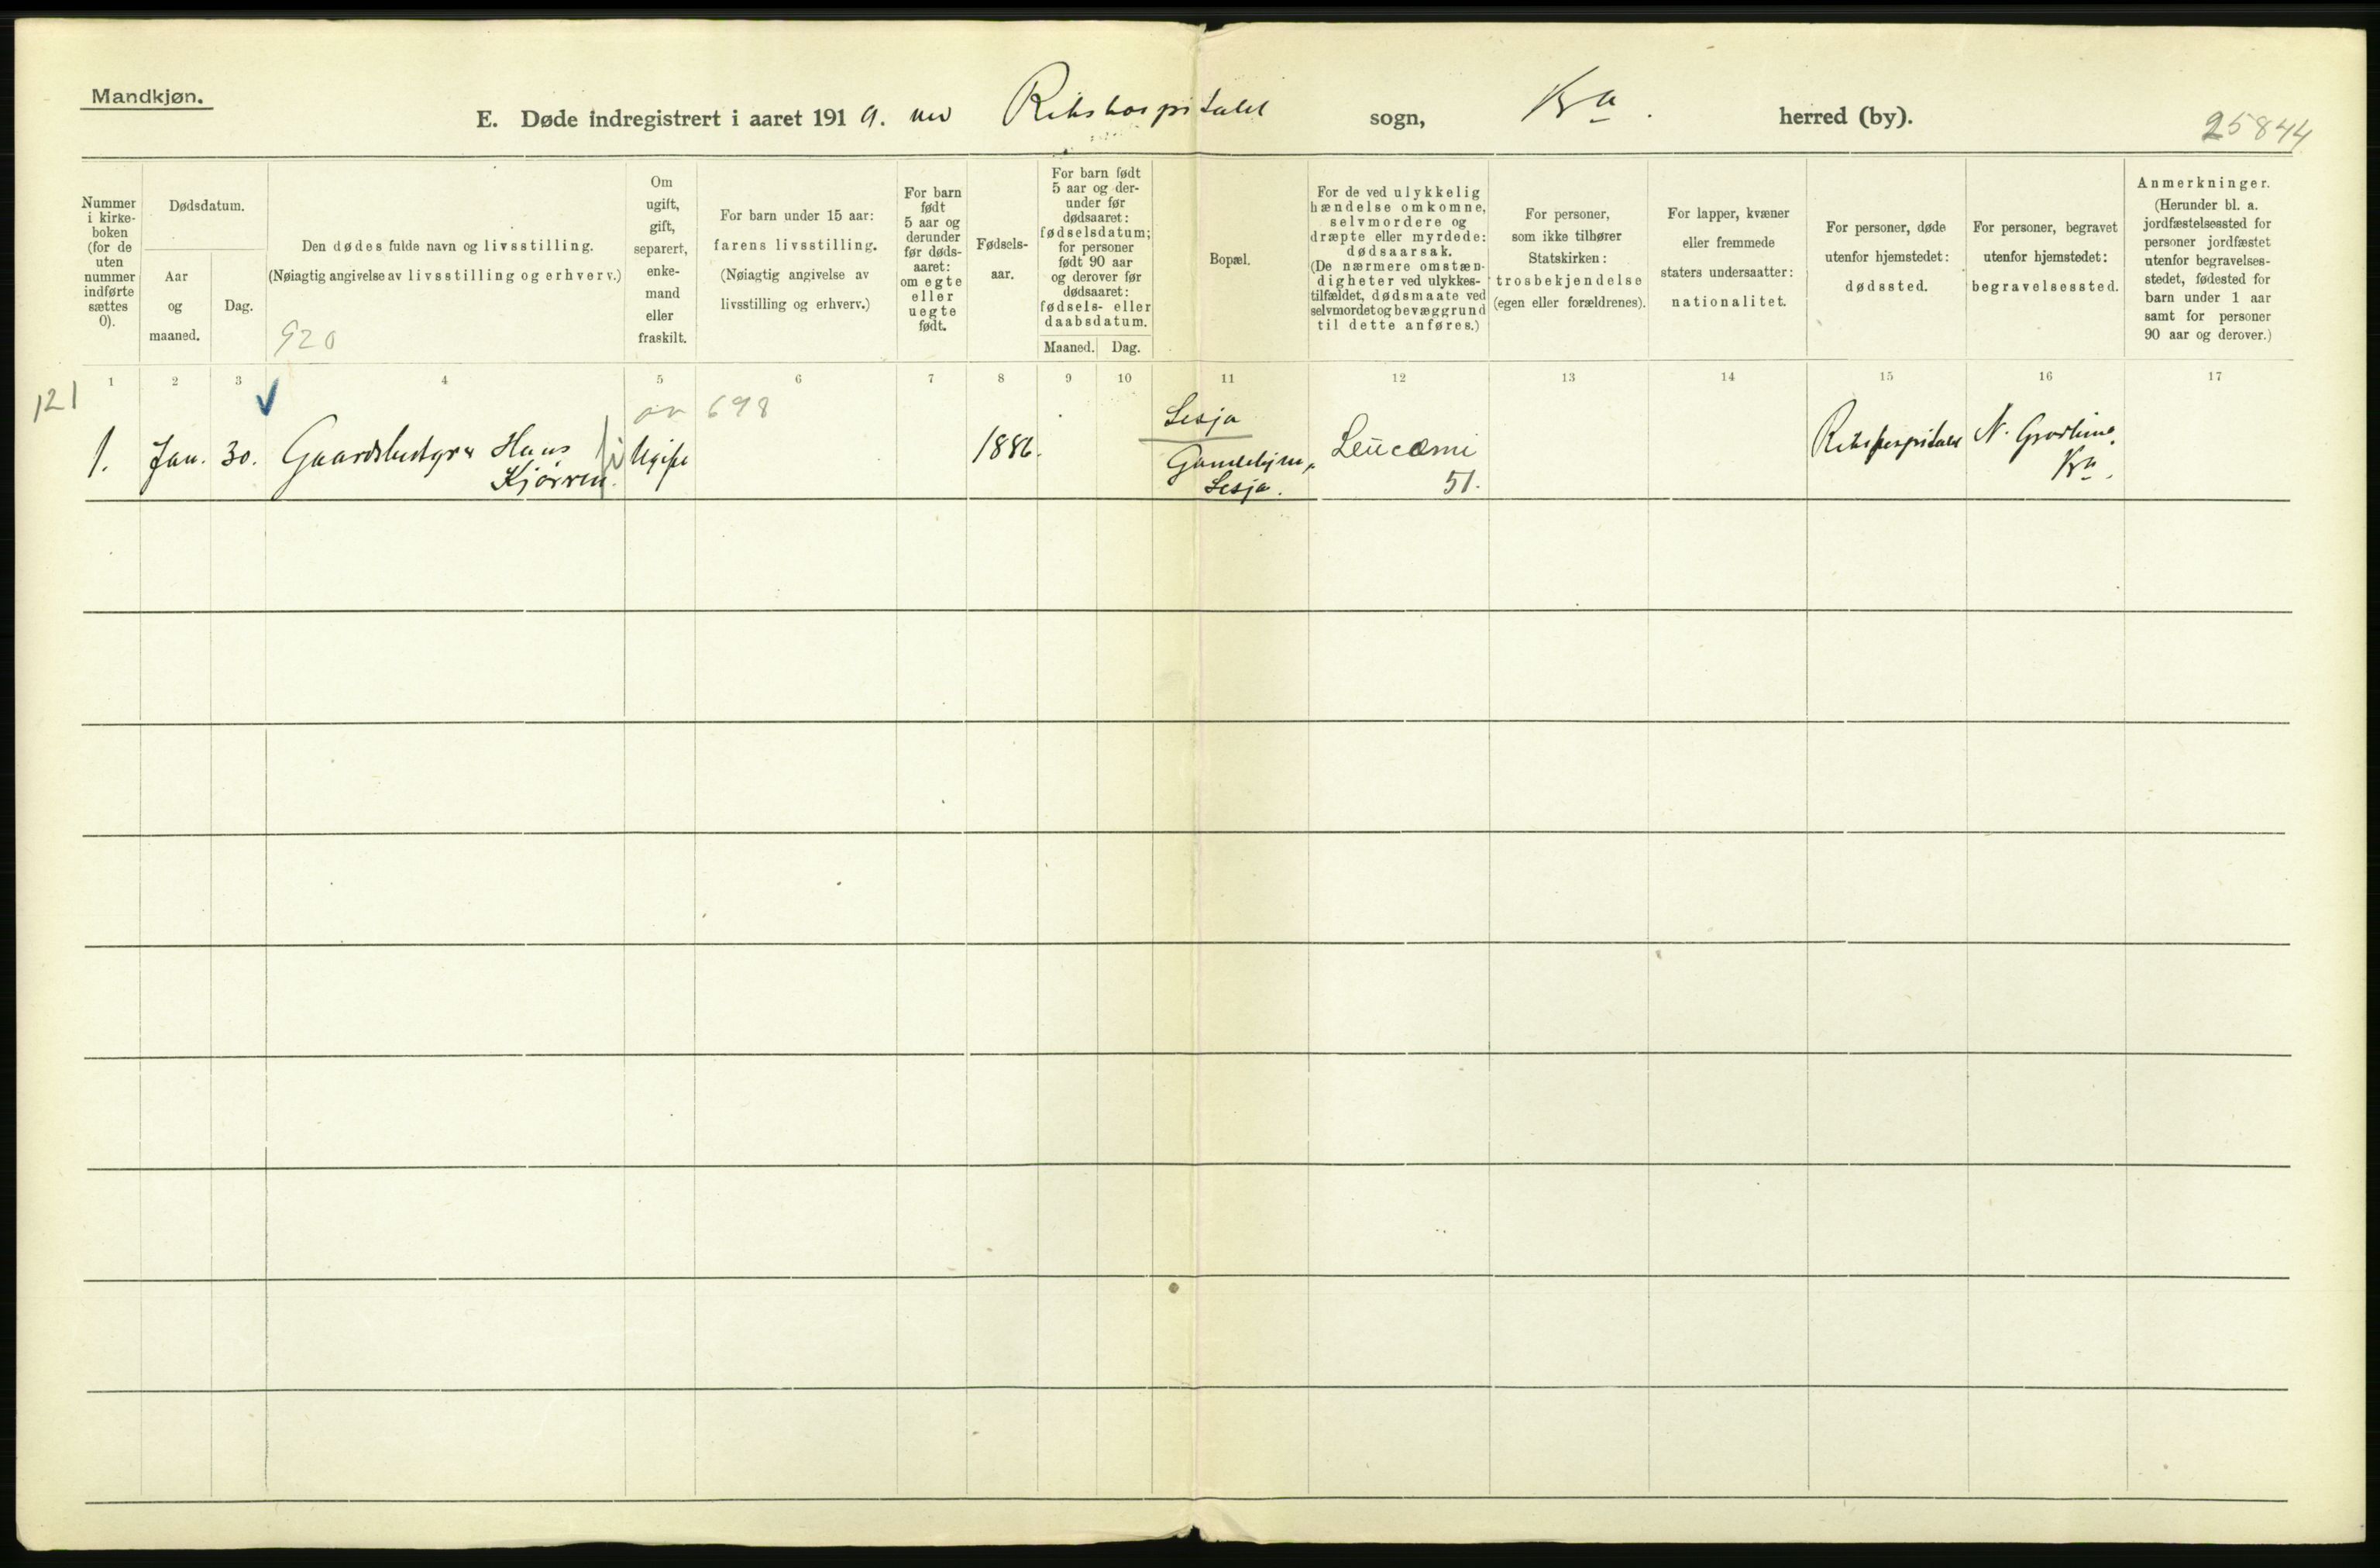 Mandkjøn.
E. Døde indregistrert i aaret 1919. ved Rikshospitalet sogn, Kra. herred (by).
25844
Nummer
i kirke-
boken
(for de
uten
nummer
indførte
sættes
0).
Dødsdatum.
Aar
og
maaned.
Dag.
Den dødes fulde navn og livsstilling.
(Nøiagtig angivelse av livsstilling og erhverv.)
920
Om
ugift,
gift,
separert,
enke-
mand
eller
fraskilt.
For barn under 15 aar:
farens livsstilling.
(Nøiagtig angivelse av
livsstilling og erhverv.)
For barn
født
5 aar og
derunder
før døds-
aaret:
om egte
eller
uegte
født.
Fødsels-
aar.
For barn født
5 aar og der-
under før
dødsaaret:
fødselsdatum;
for personer
født 90 aar
og derover før
dødsaaret:
fødsels- eller
daabsdatum.
Maaned. Dag.
Bopæl.
For de ved ulykkelig
hændelse omkomne,
selvmordere og
dræpte eller myrdede:
dødsaarsak.
(De nærmere omstæn-
digheter ved ulykkes-
tilfældet, dødsmaate ved
selvmordet og bevæggrund
til dette anføres.)
For personer,
som ikke tilhører
Statskirken:
trosbekjendelse
(egen eller forældrenes).
For lapper, kvæner
eller fremmede
staters undersaatter:
nationalitet.
For personer, døde
utenfor hjemstedet:
dødssted.
For personer, begravet
utenfor hjemstedet:
begravelsessted.
Anmerkninger.
(Herunder bl. a.
jordfæstelsessted for
personer jordfæstet
utenfor begravelses-
stedet, fødested for
barn under 1 aar
samt for personer
90 aar og derover.)
1 2 3 4 5 6 7 8 9 10 11 12 13 14 15 16 17
121
698
Lesja
1. Jan. 30. Gaardsbestyrer Hans
Kjørren.
Ugift
1886.
Lesja.
Leucæmi
51.
Rikshospitalet
N. Gravlund.
Kra.